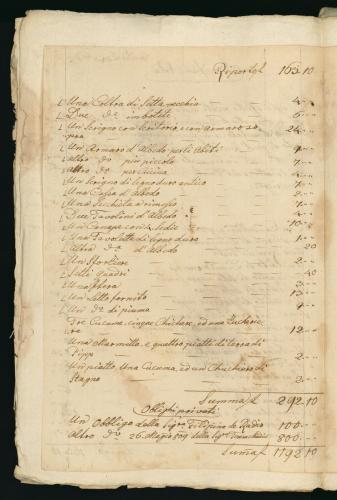 Riportol 163.10
Una Coltra di Setta vecchia 4
Due d.o imbotite 6
Un Scrigno con Scritorio, e con Armaro so
pra 24
Un Armaro d'Albedo per li Abiti
Altro d.o più piccolo 7
Altro d.o per Cucina
Un Scrigno di legno duro antico
Una Cassa d'Albedo 2
Una
Due Tavolini d'Albedo 4
Un Canapè con 10
Una Tavoletta di legno duro
Altra d.o d'Albedo 20
Un Sforzier 2
Sette quadri 40
Una
Un Letto fornito 13
Un d.o di piuma 4
Tre Cucume, cinque Chichere, ed una Zucherie
re 12
Una Marmitta, e quattro piatti di terra di
Pippa 2
Un piatto, Una Cucuma, ed un Chuchiaro di
Stagno 2
Summaf 292.10
Oblighi privati
Un Obbligo della Sig.ra de Radio 100
Altro d.o 26. Magio 809 della Sig.ra 800
Sumaf 1192.10